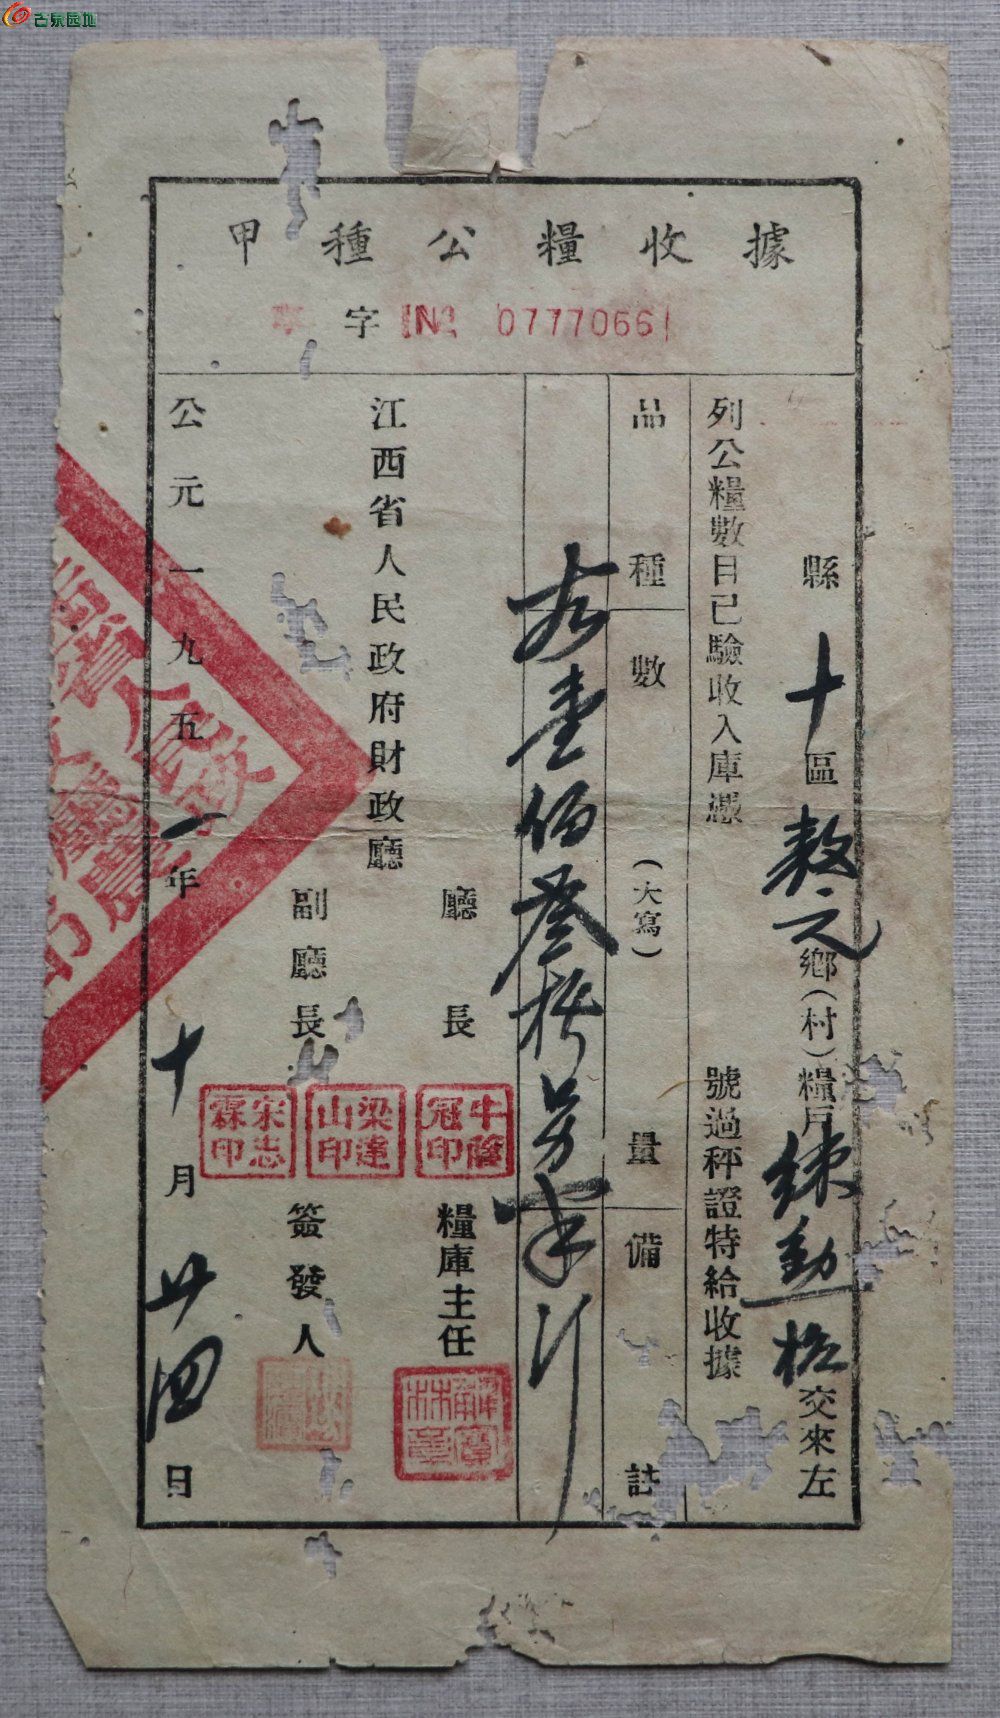 古泉园地
據收糧公種甲
字 No 0777066
縣十區敖〻乡鄉(村)糧戶練勳 交來左
列公糧數目已驗收入庫憑 號過秤證特給收據
品種 數量(大寫) 備註
谷壹佰叁拾 斤
江西省人民政府財政廳
廳長 牛蔭冠印
副廳長 梁達山印 宋志霖印
糧庫主任
簽發人
公元一九五一年十月廿四日